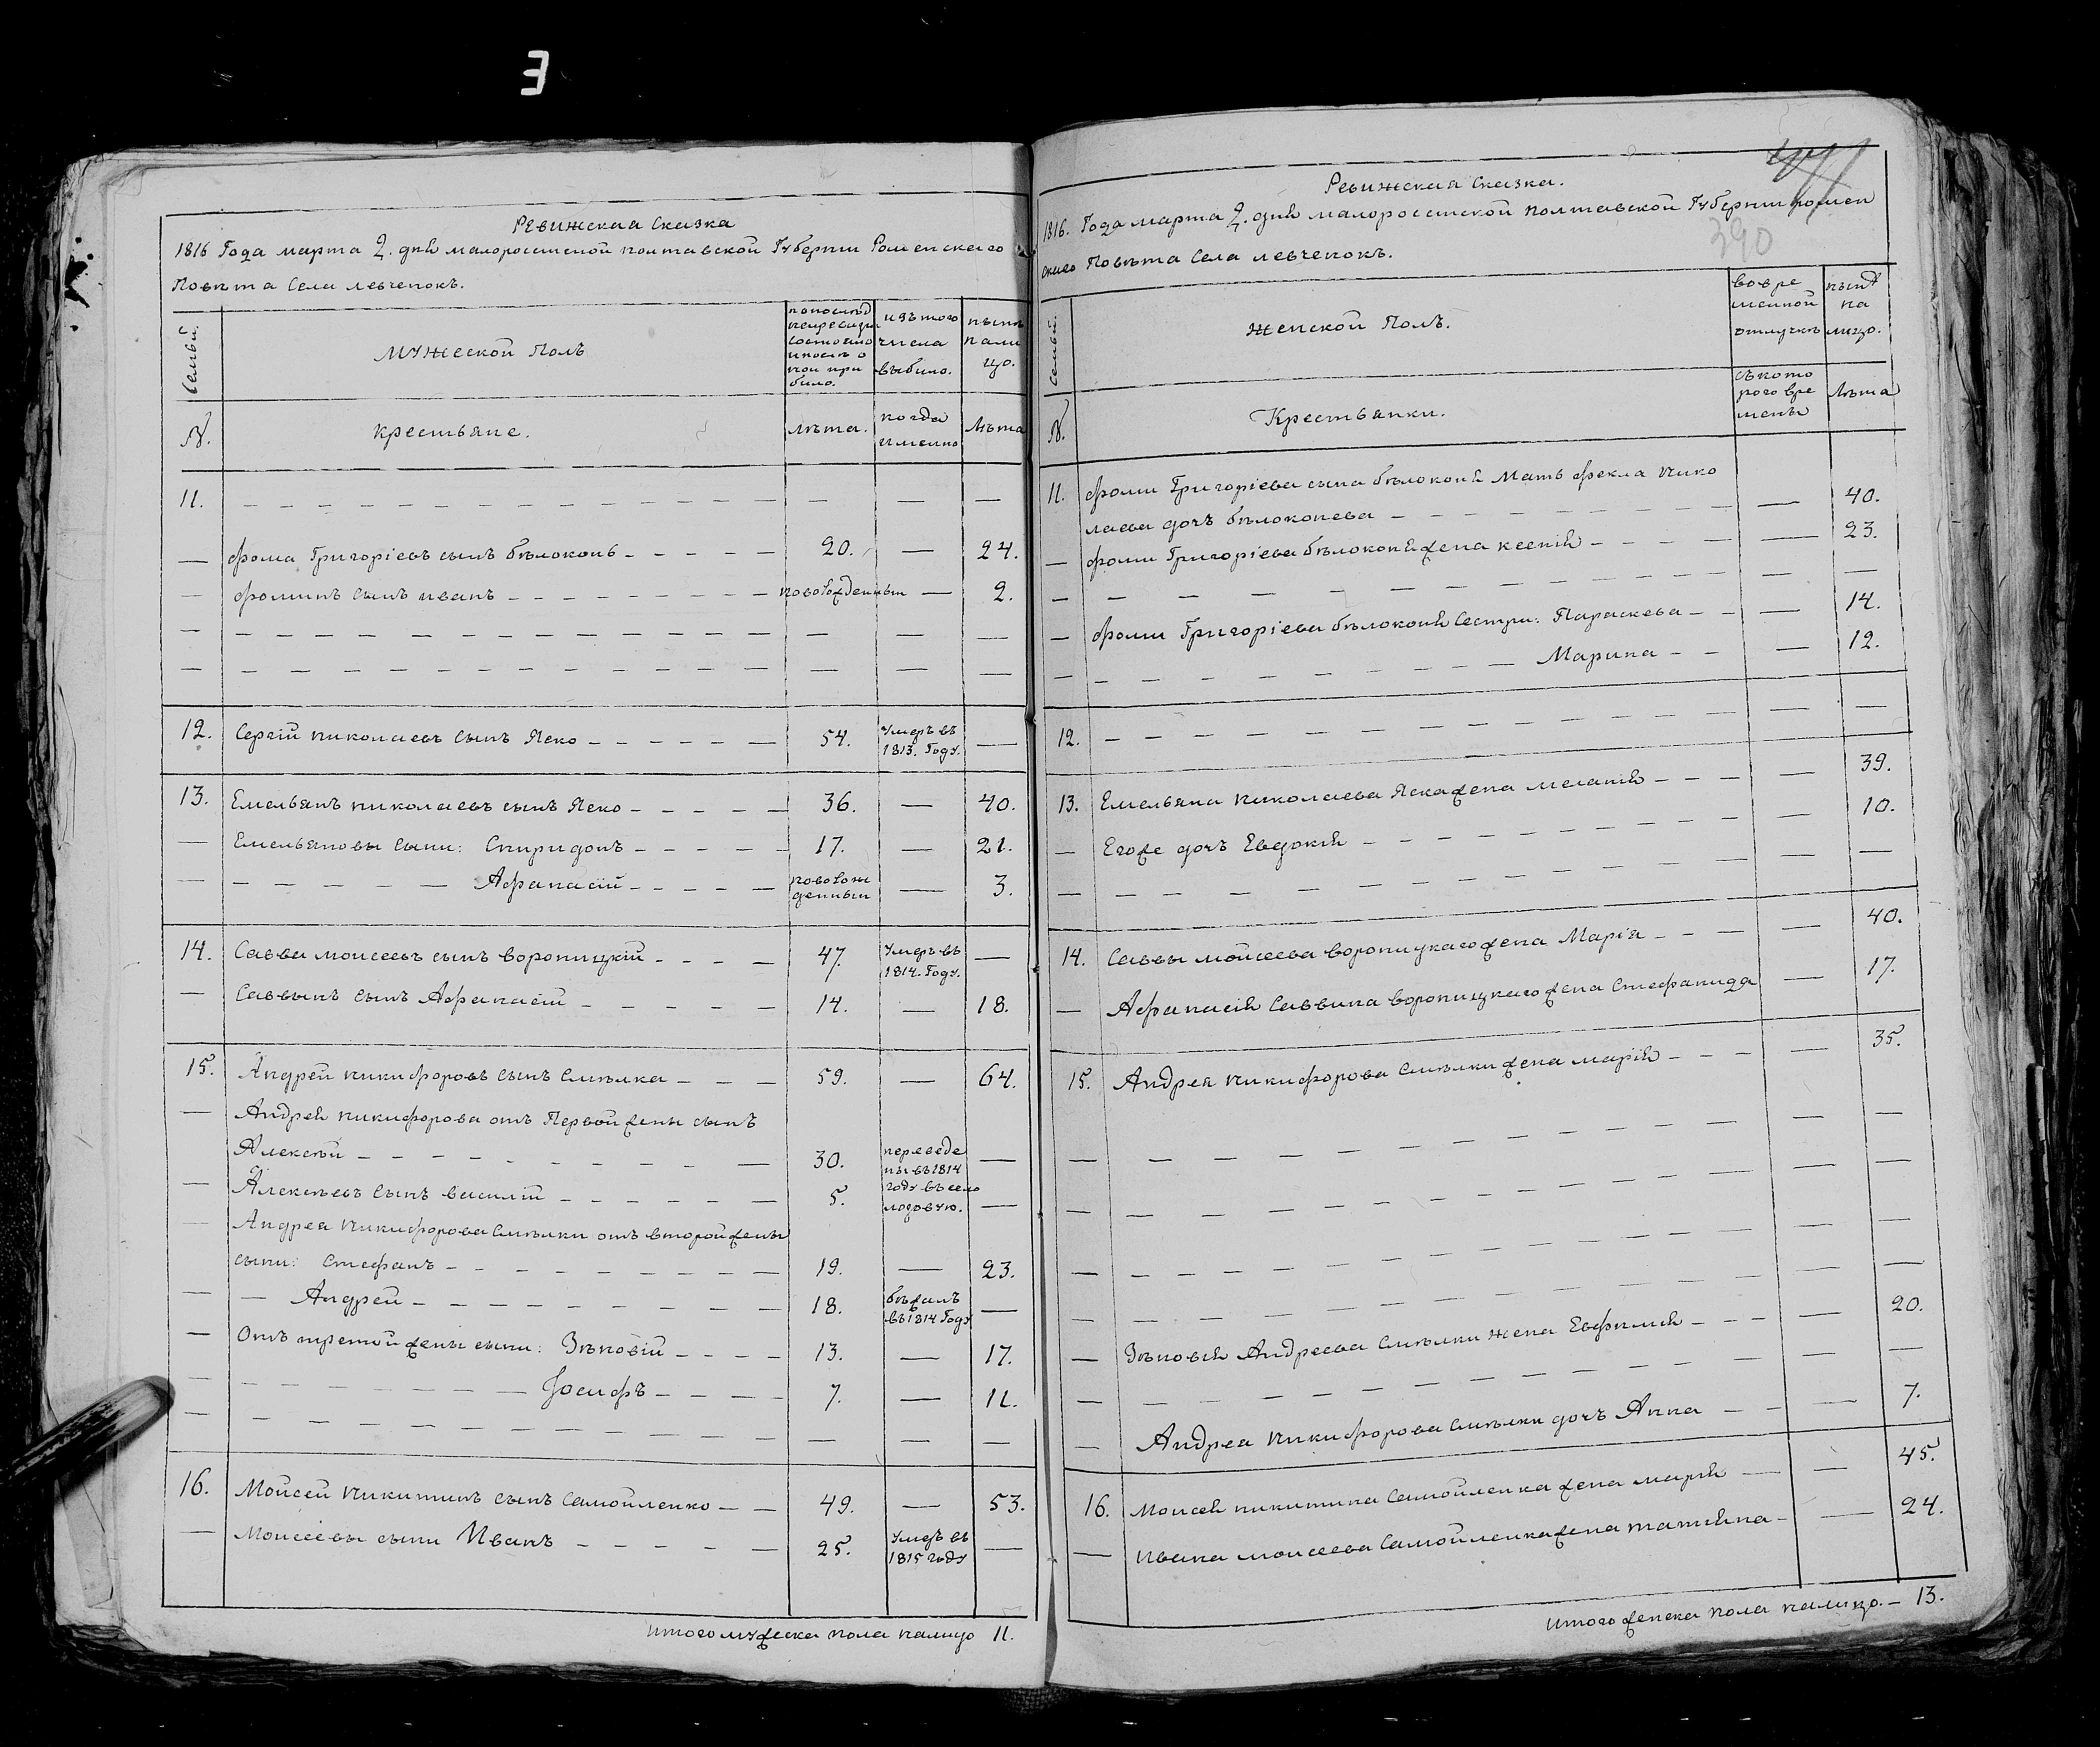 Ревижская Сказка
1816 Года марта 2. дня малоросииской полтавской Губернии Роменскаго
Повѣта Села левченокъ.
Семьи.
мужеской Полъ
по послѣд
ней ревизии
состояло
и после о
ной при
было.
изъ того
числа
выбило.
нынѣ
нали
цо.
№.
крестьяне.
лѣта.
когда
имянно
Лѣта
11. — — —
— фома Григоріевъ сынъ бѣлоконь — 20. — 24.
— фоминъ сынъ иванъ — новорожденны — 2.
— — — —
— — — —
12. Сергій николаевъ сынъ Яско — 54. Умеръ въ
1813. Году. —
13. Емельянъ николаевъ сынъ Яско — 36. — 40.
— Емельяновы сыни: Спиридонъ — 17. — 21.
— — Афанасій — новорож
денныи — 3.
14. Савва моисеевъ сынъ вороницкій — 47. Умеръ въ
1814. Году. —
— Саввынъ сынъ Афанасій — 14. — 18.
15. Андрей никифоровъ сынъ Смѣлка — 59. — 64.
— Андрея никифорова отъ Первой жены сынъ
Алексѣй — 30. переведе
ны въ 1814
— Алексѣевъ сынъ василій — 5. году въ село
— Андрея никифорова Смѣлки отъ второй жены
сыни: Стефанъ — 19. — 23.
— — Андрей — 18. бѣжалъ
въ 1814 Году —
— Отъ третой жены сыни: Зѣновій — 13. — 17.
— — Іосифъ — 7. — 11.
— — — —
16. Мойсей никитинъ сынъ Самойленко — 49. — 53.
— Моисеевы сыни Иванъ — 25. Умеръ въ
1815 году —
итого мужеска пола налицо 11.
Ревижская Сказка.
1816. Года марта 2. дня малоросииской полтавской Губернии ромен
скаго Повѣта Села левченокъ.
390
Семьи.
женской Полъ.
во вре
менной
отлучкѣ
нынѣ
на
лицо.
№.
Крестьянки.
съ кото
рого вре
мены
Лѣта
11. фоми Григоріева сына бѣлоконя Мать фекла нико
лаева дочъ бѣлоконева — — 40.
— фоми Григоріева бѣлоконя жена ксенія — — 23.
— — — —
— фоми Григоріева бѣлоконя Сестри: Параскева — — 14.
— — Марина — — 12.
12. — — —
13. Емельяна николаева Яска жена меланія — — 39.
— Его же дочъ Евдокія — — 10.
— — — —
14. Саввы мойсеева вороницкаго жена Марія — — 40.
— Афанасія Саввина вороницкаго жена Стефанида — 17.
15. Андрея никифорова Смѣлки жена марія — — 35.
— — — —
— — — —
— — — —
— — — —
— Зѣновія Андреева Смѣлки жена Евфимія — — 20.
— — — —
— Андреа никифорова Смѣлки дочъ Анна — — 7.
16. Моисея никитина Самойленка жена марія — — 45.
— ивана моисеева Самойленка жена татіяна — — 24.
итого женска пола налицо. — 13.